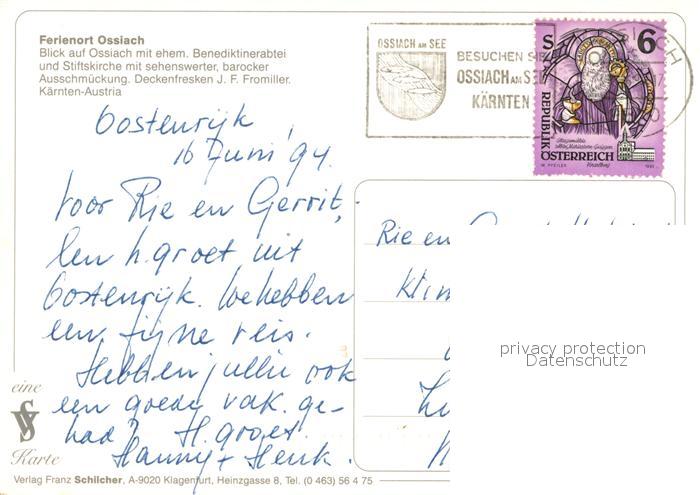 Ferienort Ossiach
Blick auf Ossiach mit ehem. Benediktinerabtei
und Stiftskirche mit sehenswerter, barocker
Ausschmückung. Deckenfresken J. F. Fromiller.
Kärnten-Austria
OSSIACH AM SEE
BESUCHEN SIE
OSSIACH AM SEE
KÄRNTEN
S 6
REPUBLIK
ÖSTERREICH
Oostenrijk
16 Juni '94.
Voor Rie en Gerrit,
Een h. groet uit
Oostenrijk. We hebben
een fijne reis.
Hebben jullie ook
een goede vak. ge-
had? H. groet.
Hanny + Henk.
Rie en
privacy protection
Datenschutz
eine
Karte
Verlag Franz Schilcher, A-9020 Klagenfurt, Heinzgasse 8, Tel. (0 463) 56 4 75